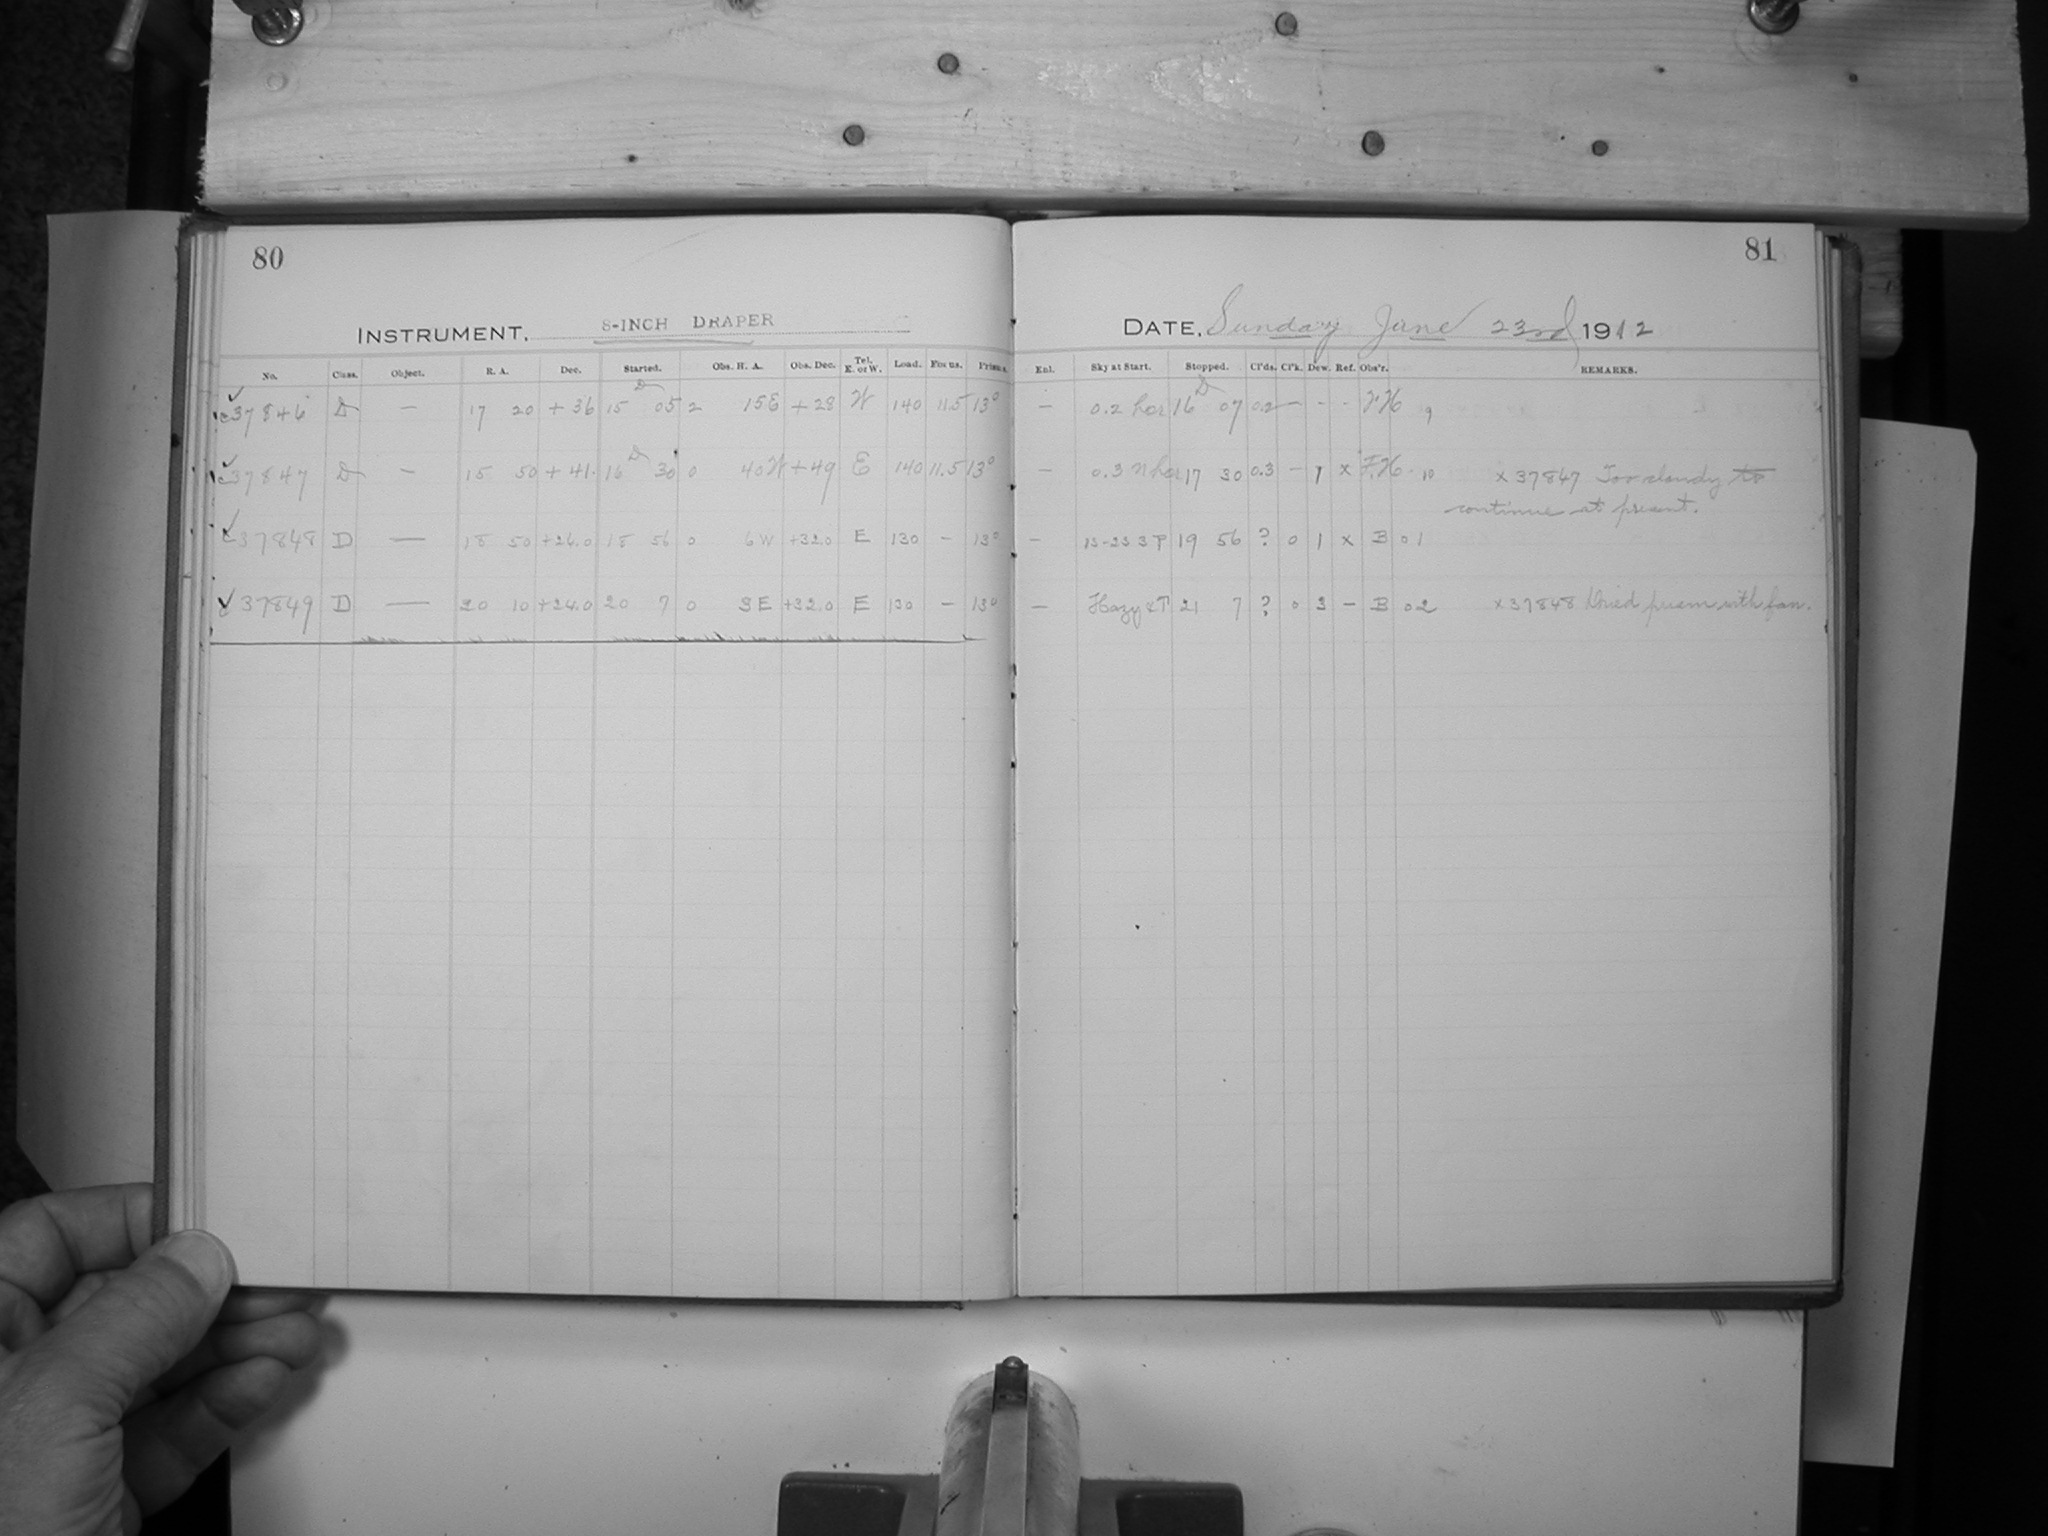 80
INSTRUMENT, 8-INCH DRAPER
No. Class. Object. R. A. Dec. Started. Obs. H. A. Obs. Dec. Tel. E. or W. Load. Focus. Prism.
D
c37846 D — 17 20 +36 15 05 2 15E +28 W 140 11.5 13°
D
c37847 D — 15 50 +41. 16 30 0 40W +49 E 140 11.5 13°
c37848 D — 18 50 +26.0 18 56 0 6W +32.0 E 130 — 13°
c37849 D — 20 10 +24.0 20 7 0 3E +32.0 E 130 — 13°
81
DATE, Sunday June 23rd 1912
Enl. Sky at Start. Stopped. Cl'ds. Cl'k. Dew. Ref. Obs'r. REMARKS.
D
— 0.2 hor 16 07 0.2 — - - F.H. 9
— 0.3 17 30 0.3 — 1 x F.H. 10 x 37847 Too cloudy to
continue at present.
— 19 56 ? 0 1 x B 01
— Hazy & T 21 7 ? 0 3 — B 02 x 37848 Dried prism with fan.